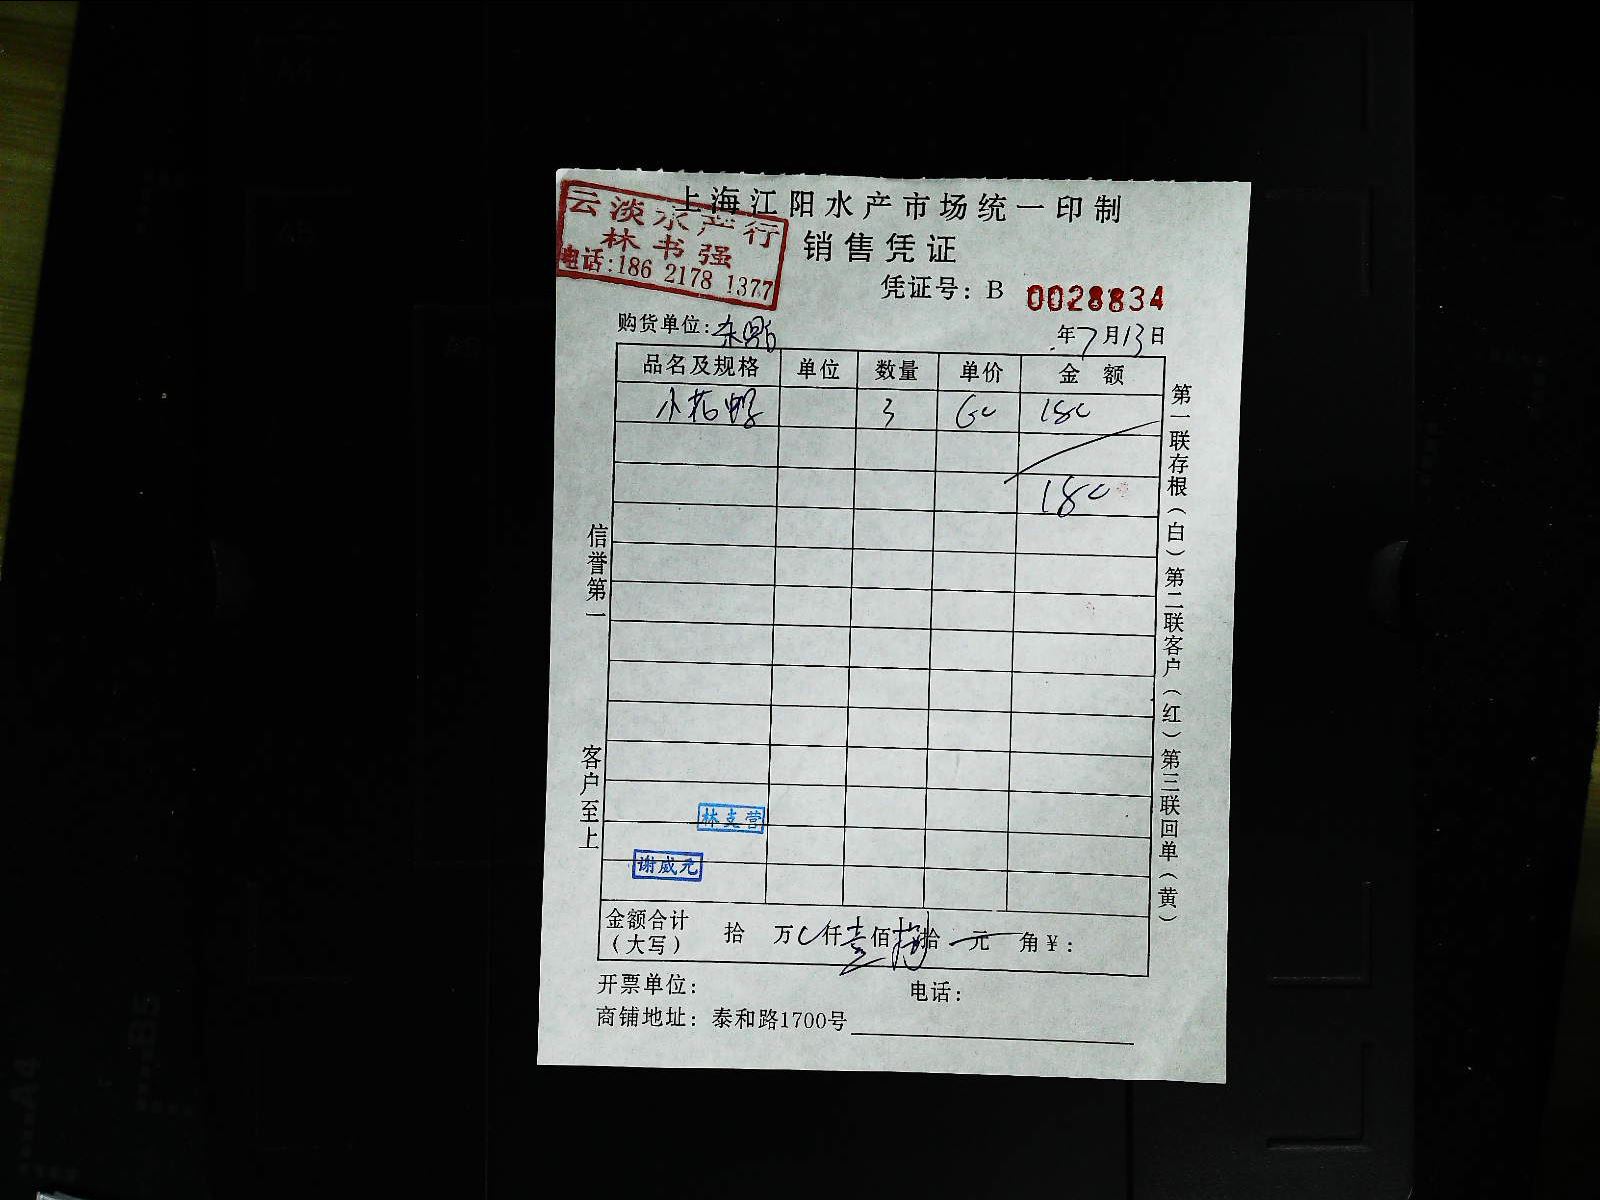 上海江阳水产市场统一印制
云淡水产行
林书强
电话:186 2178 1377
销售凭证
凭证号: B 0028834
购货单位:
年7月13日
品名及规格 单位 数量 单价 金额
小花 3 60 180
180
信誉第一
客户至上
第一联存根(白)第二联客户(红)第三联回单(黄)
林克营
谢威元
金额合计(大写) 拾 万 仟壹佰捌拾 元 角¥:
开票单位: 电话:
商铺地址: 泰和路1700号